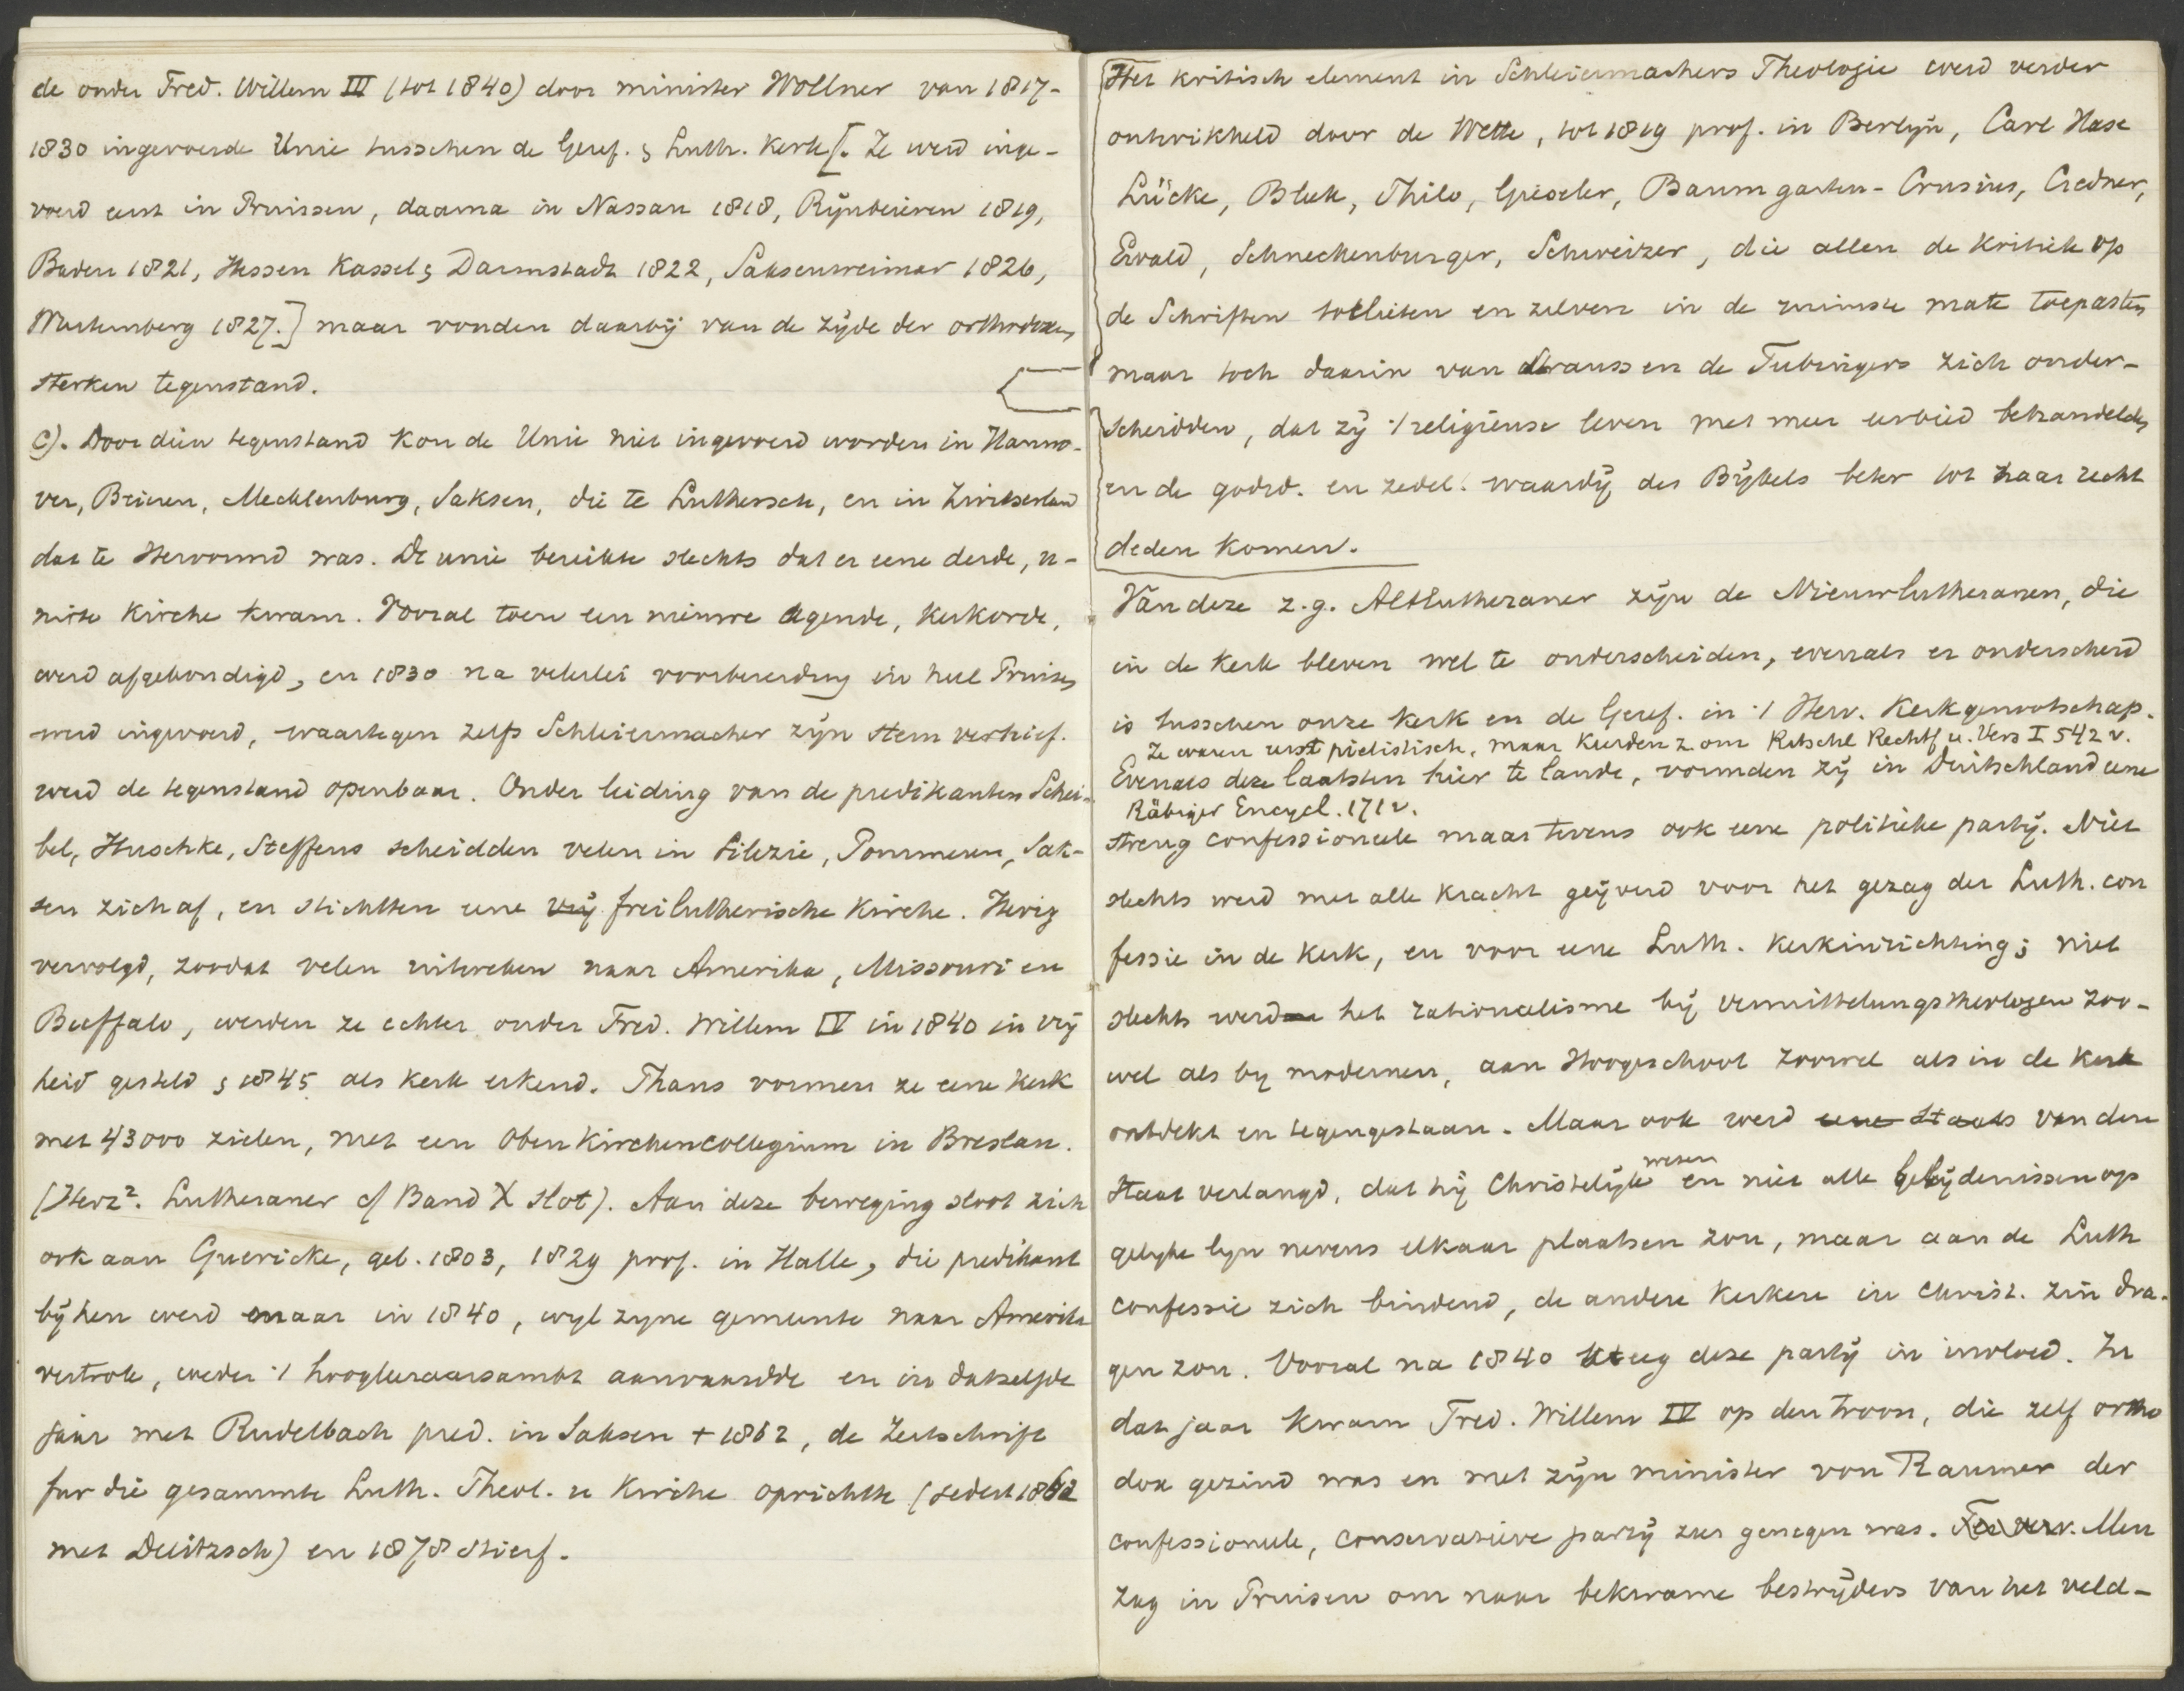 de onder Fred. Willem III (tot 1840) door minister Wöllner van 1817-
1830 ingevoerde Unie tusschen de Geref. & Luth. Kerk [. Ze werd inge-
voerd eerst in Pruissen, daarna in Nassau 1818, Rijnbeieren 1819,
Baden 1821, Hessen Kassel & Darmstadt 1822, Saksenweimar 1826,
Wurtemberg 1827.] maar vonden daarbij van de zijde der orthodoxen
sterken tegenstand.
c). Door dien tegenstand kon de Unie niet ingevoerd worden in Hanno-
ver, Beieren, Mecklenburg, Saksen, die te Luthersch, en in Zwitserland
dat te Hervormd was. De unie bereikte slechts dat er eene derde, u-
nirte Kirche kwam. Vooral toen een nieuwe agende, kerkorde,
werd afgekondigd, en 1830 na velerlei voorbereiding in heel Pruisen
werd ingevoerd, waartegen zelfs Schleiermacher zijn stem verhief.
werd de tegenstand openbaar. Onder leiding van de predikanten Schei-
bel, Huschke, Steffens scheidden velen in Silezie, Pommeren, Sak-
sen zich af, en stichtten eene vrij freilutherische Kirche. Hevig
vervolgd, zoodat velen uitweken naar Amerika, Missouri en
Buffalo, werden ze echter onder Fred. Willem IV in 1840 in vrij
heid gesteld & 1845 als kerk erkend. Thans vormen ze eene kerk
met 43000 zielen, met een Oberkirchencollegium in Breslau.
(Herz². Lutheraner cf Band X slot). Aan deze beweging sloot zich
ook aan Guericke, geb. 1803, 1829 prof. in Halle, die predikant
bij hen werd maar in 1840, wijl zyne gemeente naar Amerika
vertrok, weder 't hoogleeraarsambt aanvaardde en in datzelfde
jaar met Rudelbach pred. in Saksen + 1862, de Zeitschrift
für die gesammte Luth. Theol. u Kirche oprichtte (sedert 1862
met Delitzsch) en 1878 stierf.
Het kritisch element in Schleiermachers Theologie werd verder
ontwikkeld door de Wette, tot 1819 prof. in Berlyn, Carl Hase
Lücke, Bleek, Thilo, Gieseler, Baumgarten-Crusius, Credner,
Ewald, Schneckenburger, Schweizer, die allen de kritiek op
de Schriften toelieten en zelven in de ruimste mate toepasten
maar toch daarin van Strauss en de Tubingers zich onder-
scheidden, dat zij 't religieuse leven met meer eerbied behandelden
en de godsd. en zedel. waardij des Bijbels beter tot haar recht
deden komen.
Van deze z.g. Altlutheraner zijn de Nieuwlutheranen, die
in de kerk bleven wel te onderscheiden, evenals er onderscheid
is tusschen onze kerk en de Geref. in 't Herv. Kerkgenootschap.
Ze waren eerst pietistisch, maar keerden z. om Ritschl Rechtf u. Vers I 542 v.
Evenals deze laatsten hier te lande, vormden zij in Duitschland eene
Räbiger Encycl. 171 v.
streng confessioneele maar tevens ook eene politieke partij. Niet
slechts werd met alle kracht geijverd voor het gezag der Luth. con
fessie in de kerk, en voor eene Luth. kerkinrichting; niet
slechts werd het rationalisme bij Vermittelungstheologen zoo-
wel als by modernen, aan Hoogeschool zoowel als in de kerk
ontdekt en tegengestaan. Maar ook werd eene Staats van den
wezen
Staat verlangd, dat hij Christelijk en niet alle belijdenissen op
gelyke lyn nevens elkaar plaatsen zou, maar aan de Luth
confessie zich bindend, de andere kerken in christ. zin dra-
gen zou. Vooral na 1840 steeg deze partij in invloed. In
dat jaar kwam Fred. Willem IV op den troon, die zelf ortho
dox gezind was en met zijn minister von Raumer der
confessioneele, conservatieve partij zeer genegen was. Men
zag in Pruisen om naar bekwame bestrijders van het veld-